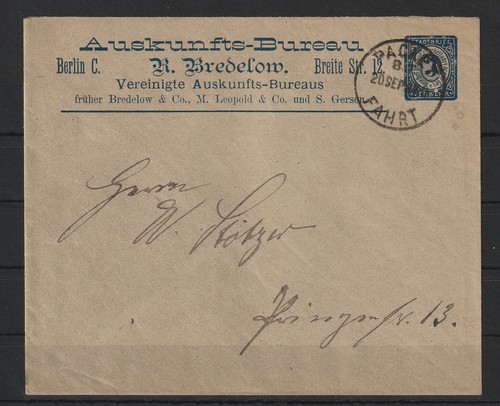 Auskunfts-Bureau
Berlin C. R. Bredelow. Breite Str. 12.
Vereinigte Auskunfts-Bureaus
früher Bredelow & Co., M. Leopold & Co. und S. Gerson
PACKET
20 SEP
FAHRT
STADTBRIEF
3
Herrn
W. Stötzer
Prinzenstr. 13.